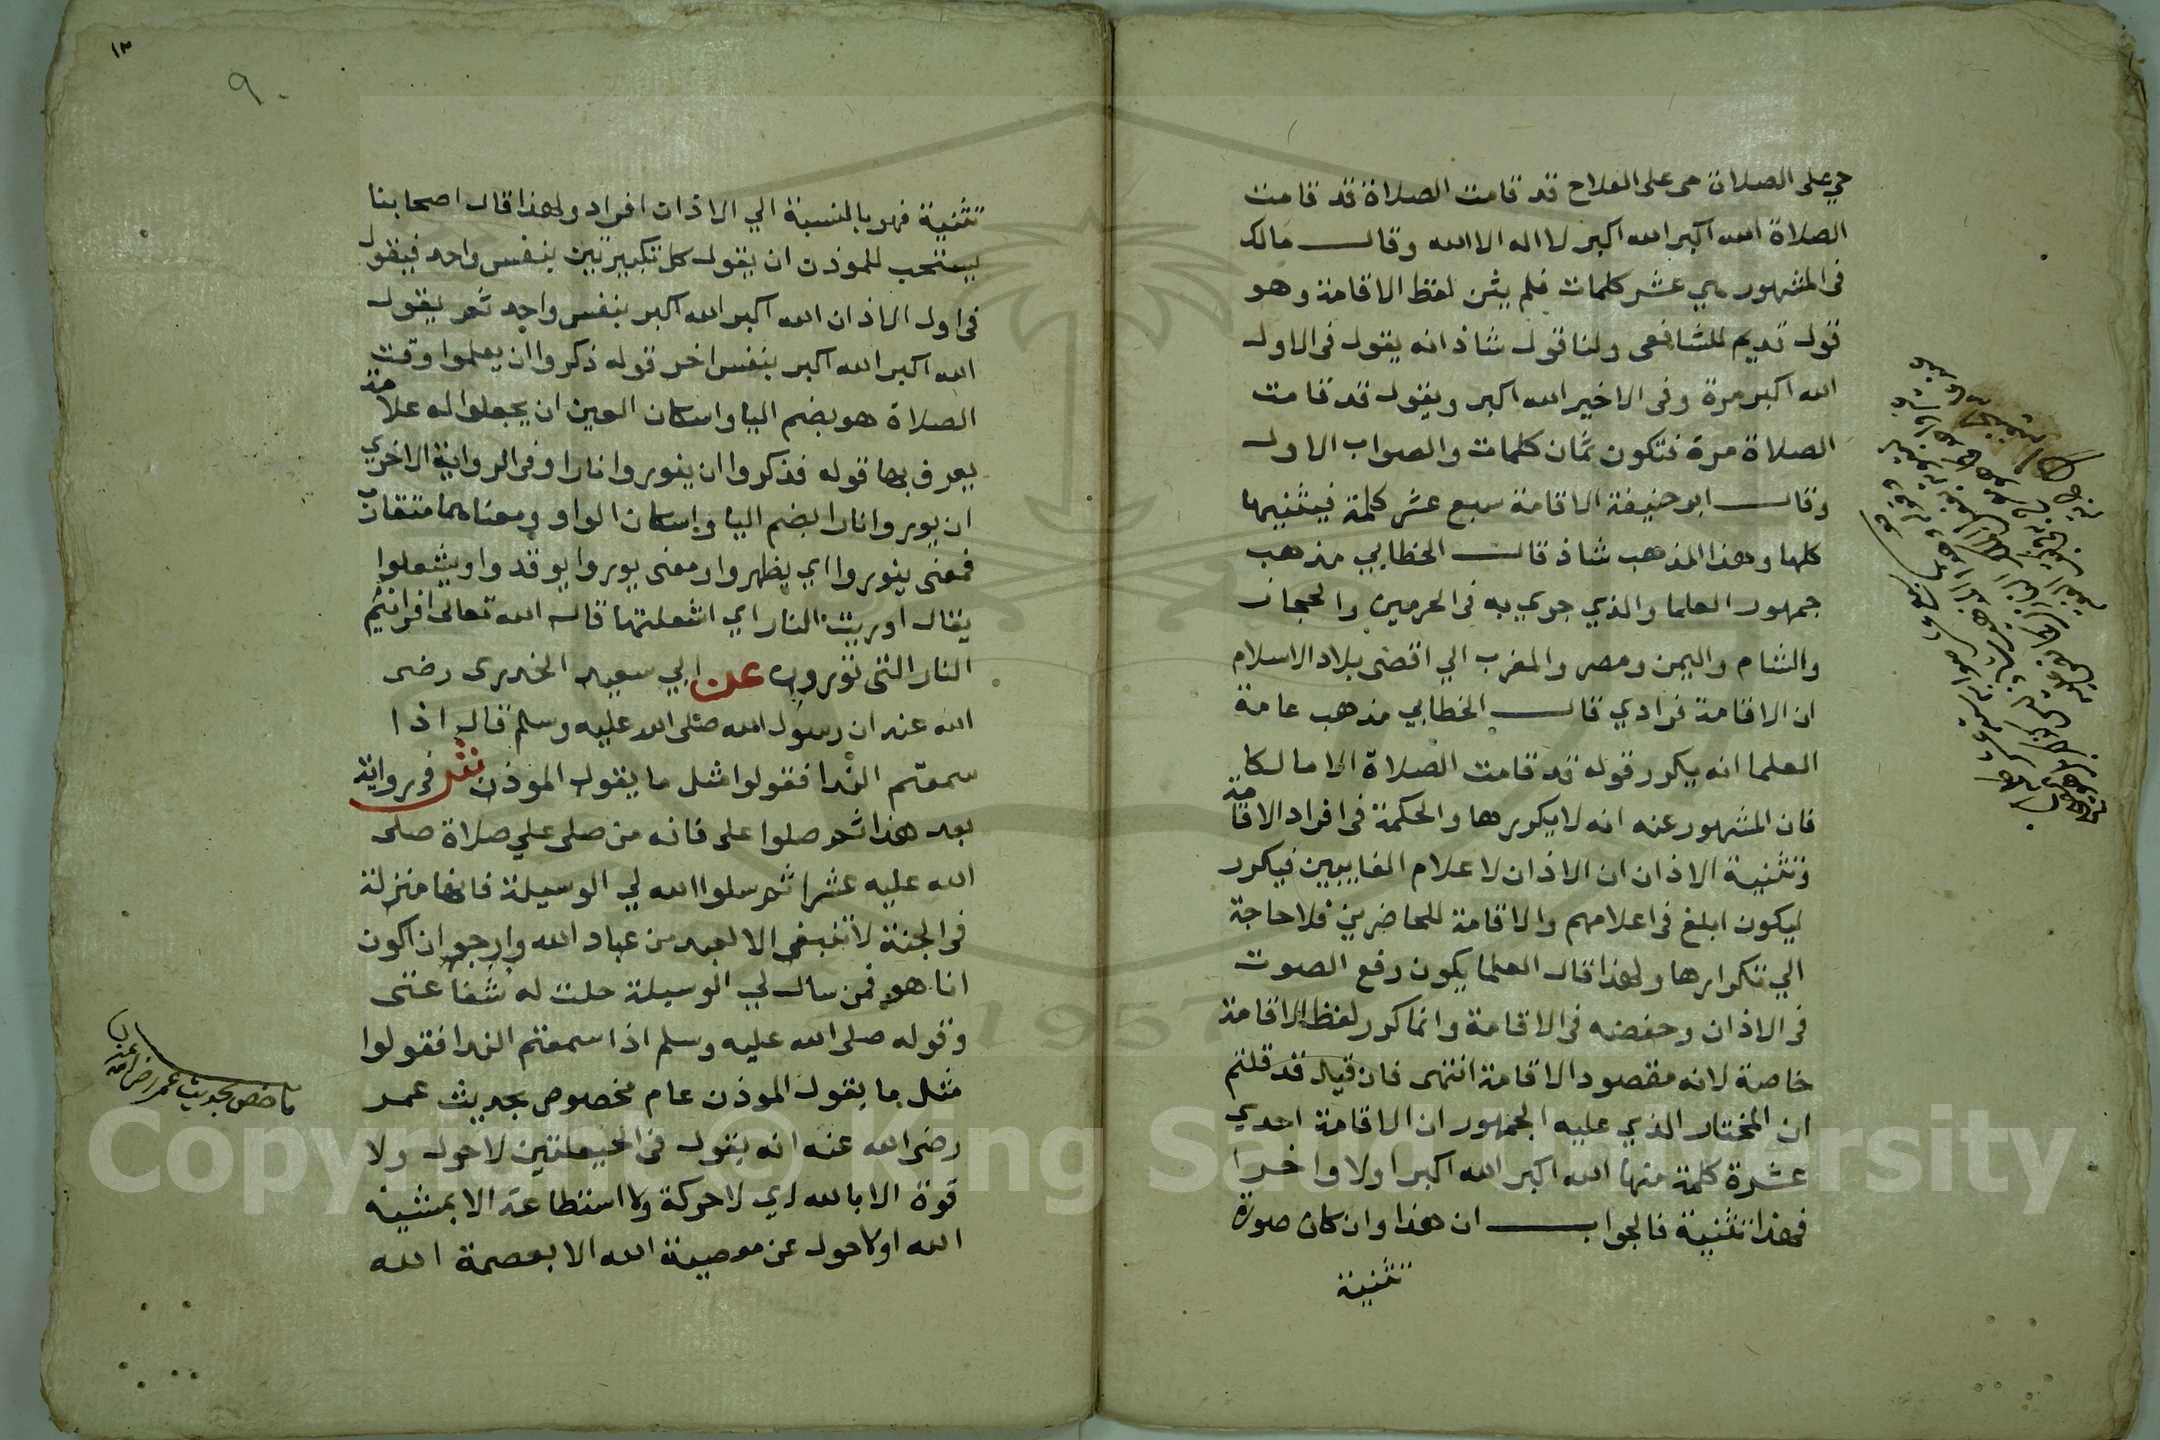 حي على الصلاة حي على الفلاح قد قامت الصلاة قد قامت
الصلاة الله اكبر الله اكبر لا اله الا الله وقال مالك
في المشهور هي عشر كلمات فلم يثن لفظ الاقامة وهو
قول قديم للشافعي ولنا قول شاذ انه يقول في الاول
الله اكبر مرة وفي الاخير الله اكبر ويقول قد قامت
الصلاة مرة فتكون ثمان كلمات والصواب الاول
وقال ابو حنيفة الاقامة سبع عشر كلمة فيثنيها
كلها وهذا المذهب شاذ قال الخطابي مذهب
جمهور العلما والذي جري به في الحرمين والحجاز
والشام واليمن ومصر والمغرب الي اقصى بلاد الاسلام
ان الاقامة فرادي قال الخطابي مذهب عامة
العلما انه يكرر قوله قد قامت الصلاة الا مالكا
فان المشهور عنه انه لا يكررها والحكمة في افراد الاقامة
وتثنية الاذان ان الاذان لاعلام الغايبين فيكرر
ليكون ابلغ في اعلامهم والاقامة للحاضرين فلا حاجة
الي تكرارها ولهذا قال العلما يكون رفع الصوت
في الاذان وخفضه في الاقامة وانما كرر لفظ الاقامة
خاصة لانه مقصود الاقامة انتهى فان قيل قد قلتم
ان المختار الذي عليه الجمهور ان الاقامة احدي
عشرة كلمة منها الله اكبر الله اكبر اولا واخرا
فهذا تثنية فالجواب ان هذا وان كان صورة
تثنية
١٣
٩
تثنية فهو بالنسبة الي الاذان افراد ولهذا قال اصحابنا
يستحب للموذن ان يقول كل تكبيرتين بنفس واحد فيقول
في اول الاذان الله اكبر الله اكبر بنفس واحد ثم يقول
الله اكبر الله اكبر بنفس اخر قوله ذكروا ان يعلموا وقت
الصلاة هو بضم اليا واسكان العين ان يجعلوا له علامة
يعرف بها قوله فذكروا ان ينوروا نارا وفي الرواية الاخري
ان يوروا نارا بضم اليا واسكان الواو ومعناهما متقارب
فمعنى ينوروا اي يظهروا ومعنى يوروا يوقدوا ويشعلوا
يقال اوريت النار اي اشعلتها قال الله تعالى افرايتم
النار التي تورون عن ابي سعيد الخدري رضى
الله عنه ان رسول الله صلى الله عليه وسلم قال اذا
سمعتم الندا فقولوا مثل ما يقول الموذن نقل في رواية
بعد هذا ثم صلوا على فانه من صلى علي صلاة صلى
الله عليه عشرا ثم سلوا الله لي الوسيلة فانها منزلة
في الجنة لا تنبغي الا لعبد من عباد الله وارجو ان اكون
انا هو فمن سال لي الوسيلة حلت له شفاعتى
وقوله صلى الله عليه وسلم اذا سمعتم الندا فقولوا
مثل ما يقول الموذن عام مخصوص بحديث عمر
رضى الله عنه انه يقول في الحيعلتين لا حول ولا
قوة الا بالله اي لا حركة ولا استطاعة الا بمشية
الله او لا حول عن معصية الله الا بعصمة الله
بحديث عمر رضي الله عنه
Copyright © King Saud University
1957